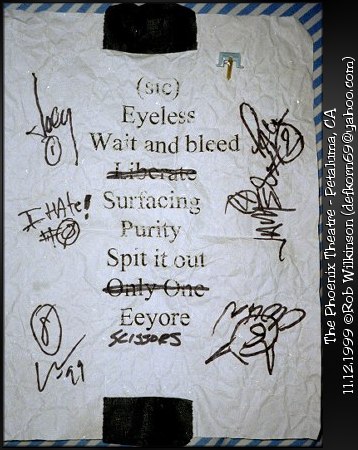 (sic)
Eyeless
Wait and bleed
Liberate
Surfacing
Purity
Spit it out
Only One
Eeyore
SCISSORS
Joey
1
I HAte!
#0
8
99
2
The Phoenix Theatre - Petaluma, CA
11.12.1999 ©Rob Wilkinson (defkorn69@yahoo.com)